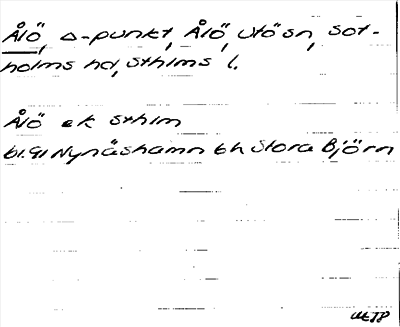 Ålö, △-punkt, Ålö, Utö sn, Sot-
holms hd, Sthlms l.
Ålö ek Sthlm
bl. 91 Nynäshamn bh Stora Björn